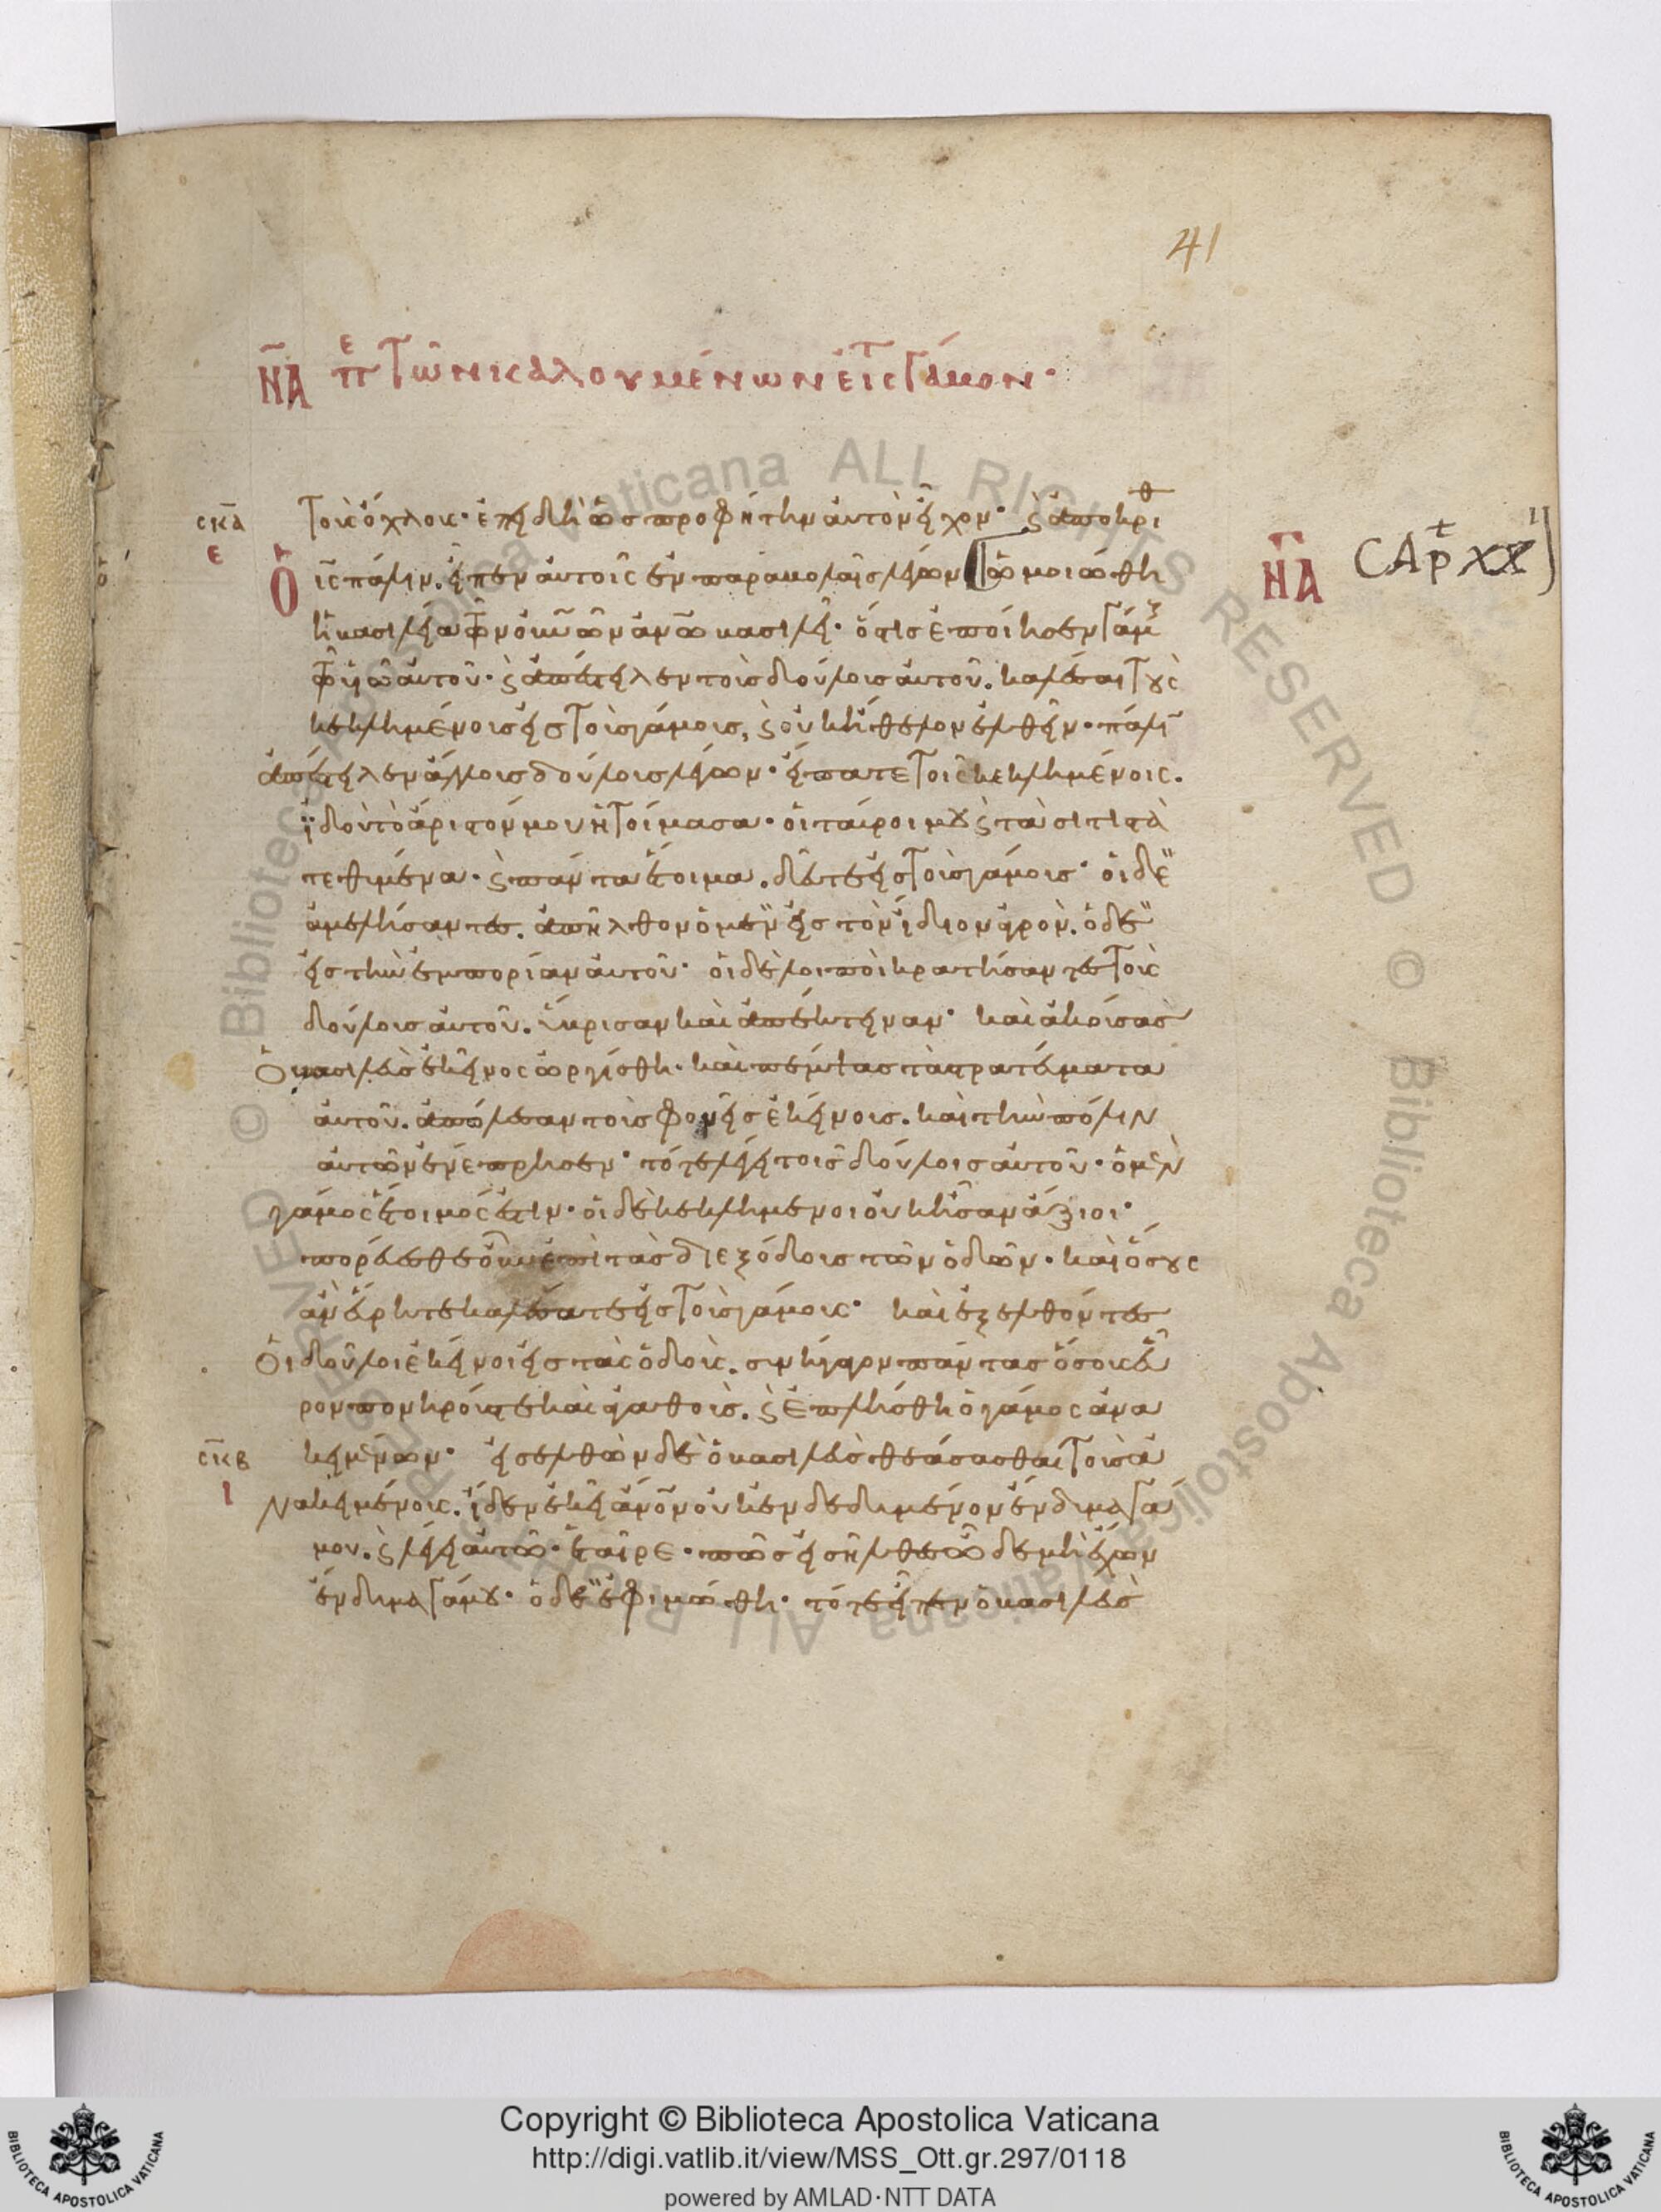 41
ΝΑ πε τῶν καλουμένων εἰς τ γάμον·
σκα τοὺς ὄχλους· ἐπειδὴ ὡς προφήτην αὐτὸν εἶχον· ϛ ἀποκριθ
ε ὁ ις πάλιν. εἶπεν αὐτοῖς ἐν παραβολαῖς λέγων ὡμοιώθη ΝΑ CAP XXII
ἡ βασιλεία τῶν οὐνῶν ἀνω βασιλεῖ· ὅστις ἐποίησεν γάμους
τῶ υἱῶ αὐτοῦ· ϛ ἀπέστειλεν τοὺς δούλους αὐτοῦ. καλέσαι τοὺς
κεκλημένους εἰς τοὺς γάμους, ϛ οὐκ ἤθελον ἐλθεῖν· πάλιν
ἀπέστειλεν ἄλλους δούλους λέγων· εἴπατε τοῖς κεκλημένοις.
ἰδοὺ τὸ ἄριστόν μου ἡτοίμασα· οἱ ταῦροι μου ϛ τὰ σιτιστὰ
τεθυμένα· ϛ πάντα ἕτοιμα. δεῦτε εἰς τοὺς γάμους· οἱ δὲ
ἀμελήσαντες. ἀπῆλθον ὁ μὲν εἰς τὸν ἴδιον ἀγρόν. ὁ δὲ
εἰς τὴν ἐμπορίαν αὐτοῦ· οἱ δὲ λοιποὶ κρατήσαντες τοὺς
δούλους αὐτοῦ. ὕβρισαν καὶ ἀπέκτειναν· καὶ ἀκούσας
ὁ βασιλεὺς ἐκεῖνος ὠργίσθη· καὶ πέμψας τὰ στρατεύματα
αὐτοῦ. ἀπώλεσαν τοὺς φονεῖς ἐκείνους. καὶ τὴν πόλιν
αὐτῶν ἐνέπρησεν· τότε λέγει τοῖς δούλοις αὐτοῦ· ὁ μὲν
γάμος ἕτοιμός ἐστιν· οἱ δὲ κεκλημένοι οὐκ ἦσαν ἄξιοι·
πορεύεσθε οὖν ἐπὶ τὰς διεξόδους τῶν ὁδῶν· καὶ ὅσους
ἂν εὕρητε καλέσατε εἰς τοὺς γάμους· καὶ ἐξελθόντες
οἱ δοῦλοι ἐκεῖνοι εἰς τὰς ὁδοὺς. συνήγαγον πάντας ὅσους εὗ
ρον πονηρούς τε καὶ ἀγαθούς. ϛ ἐπλήσθη ὁ γάμος ἀνα
σκβ κειμένων· εἰσελθὼν δὲ ὁ βασιλεὺς θεάσασθαι τοὺς ἀ
ι νακειμένους. ἴδεν ἐκεῖ ἄνον οὐκ ἐνδεδυμένον ἔνδυμα γά
μου. ϛ λέγει αὐτῶ· ἑταῖρε· πῶς εἰσῆλθες ὧδε μὴ ἔχων
ἔνδυμα γάμου· ὁ δὲ ἐφιμώθη· τότε εἶπεν ὁ βασιλεὺς
© Biblioteca Apostolica Vaticana ALL RIGHTS RESERVED © Biblioteca Apostolica Vaticana ALL RIGHTS RESERVED
BIBLIOTECA APOSTOLICA VATICANA
Copyright © Biblioteca Apostolica Vaticana
http://digi.vatlib.it/view/MSS_Ott.gr.297/0118
powered by AMLAD·NTT DATA
BIBLIOTECA APOSTOLICA VATICANA